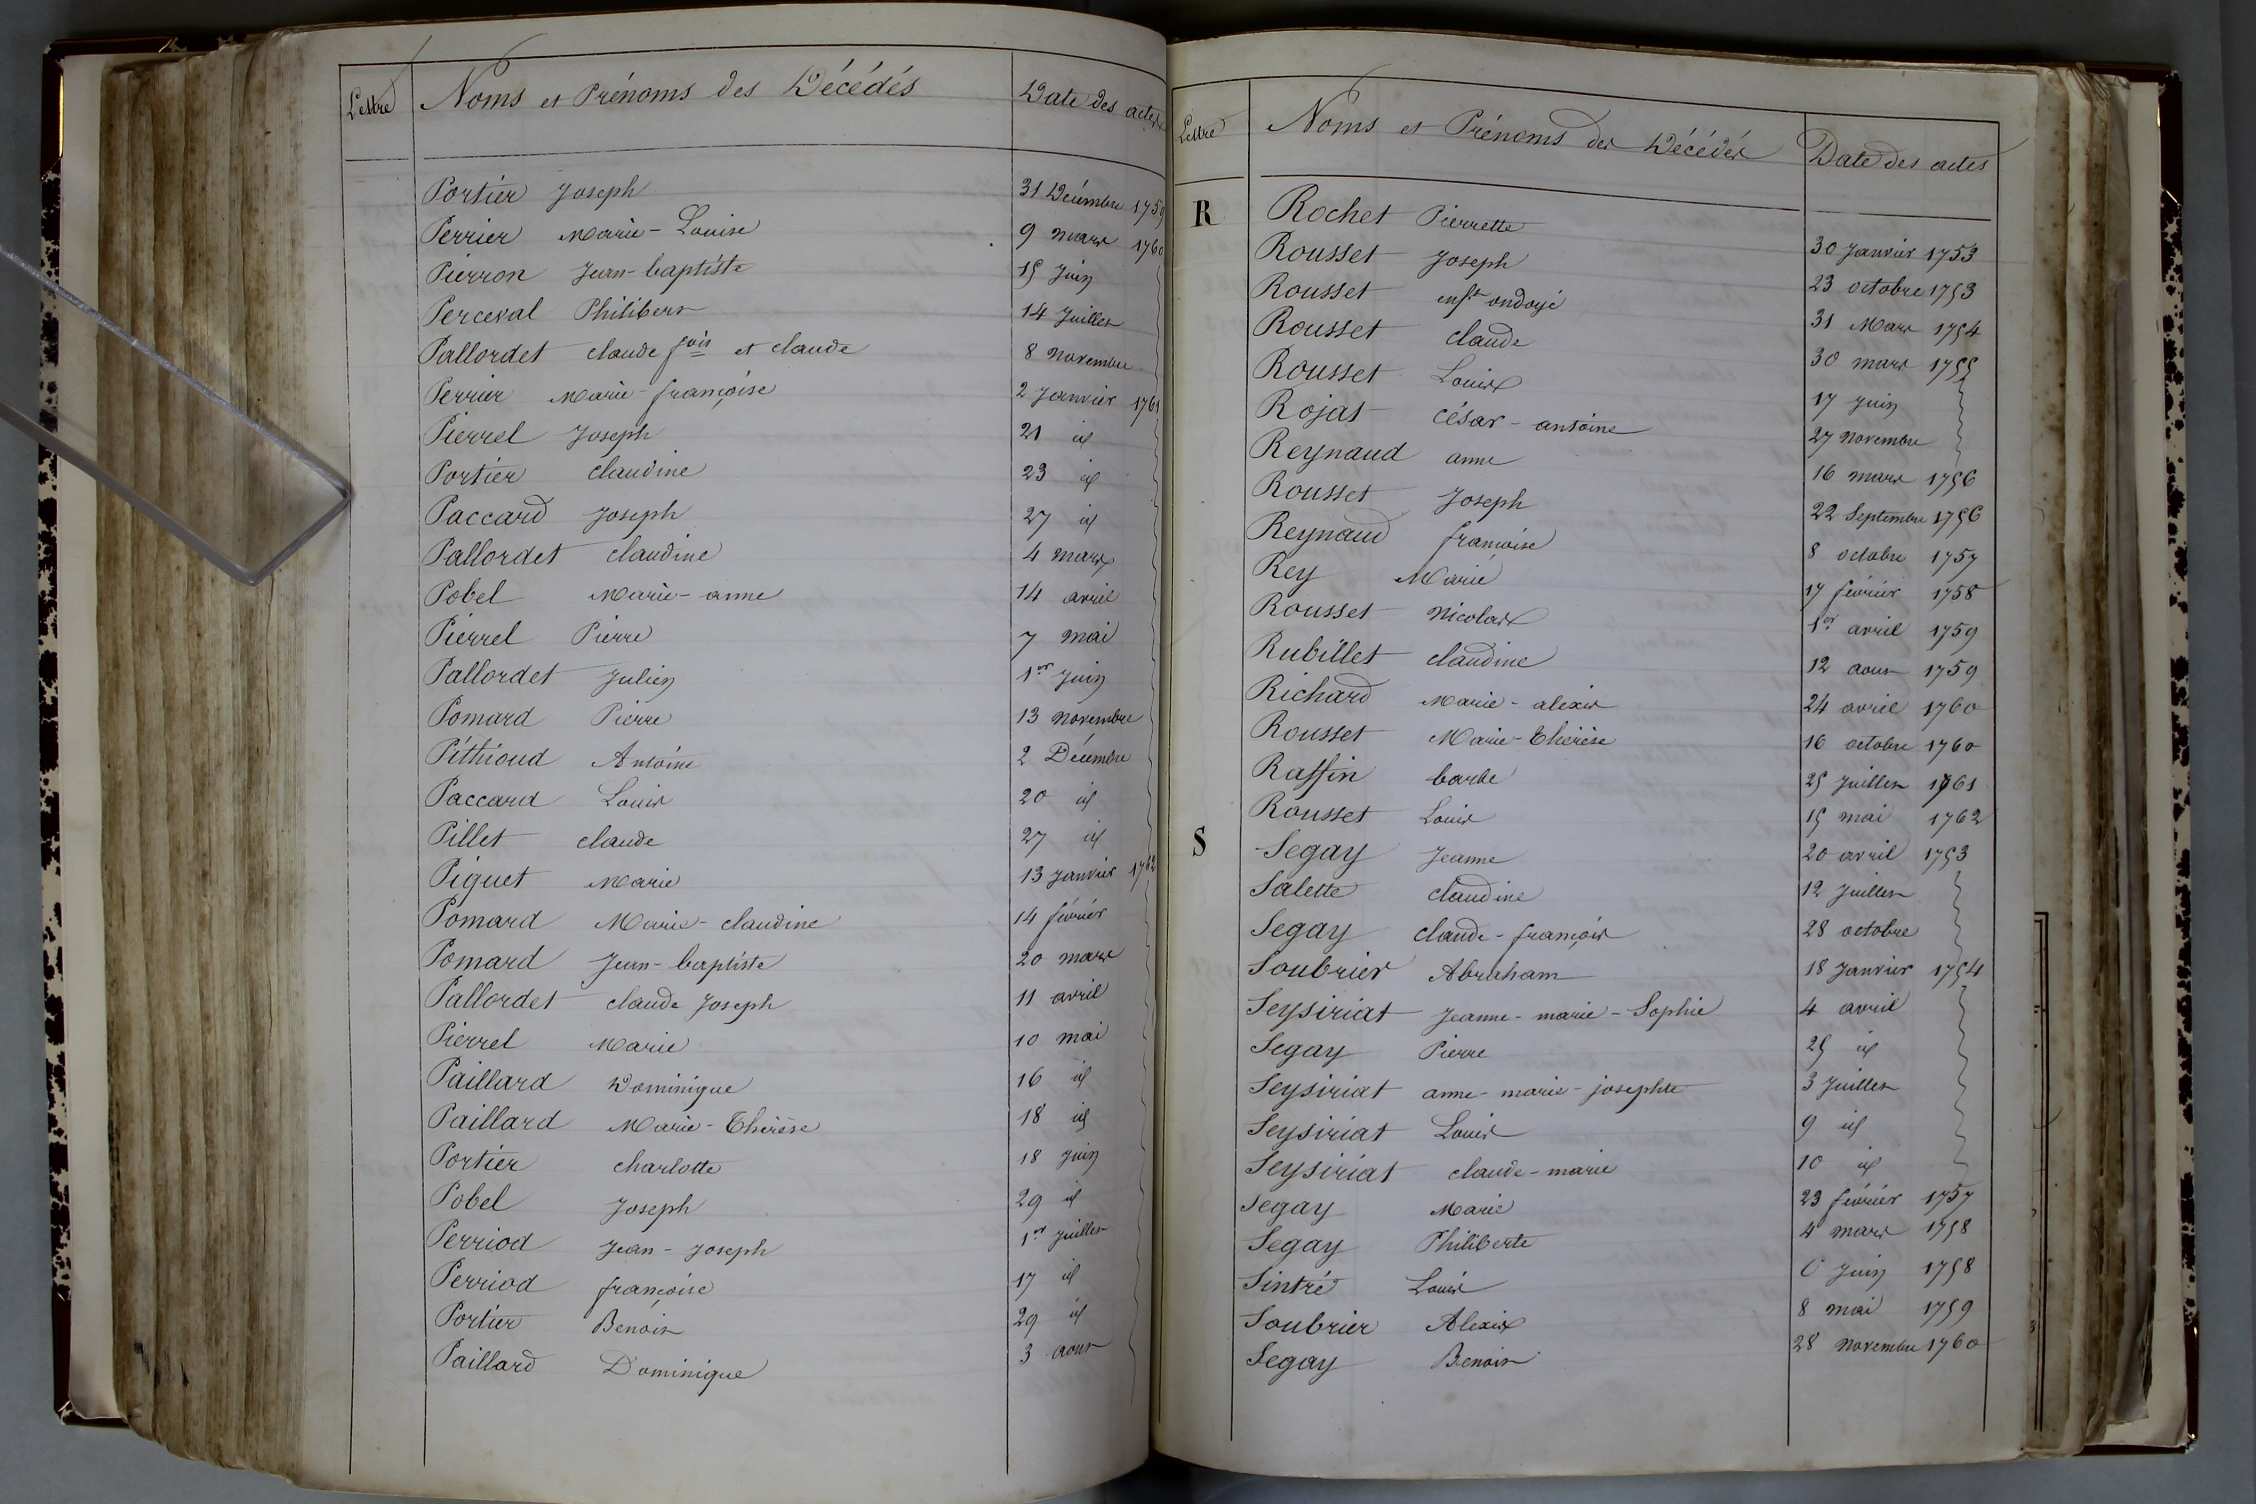 Lettre Noms et Prénoms des Décédés Date des actes
Portier Joseph 31 Décembre 1759
Perrier Marie-Louise 9 mars 1760
Pierron Jean-baptiste 15 Juin
Perceval Philibert 14 Juillet
Pallordet claude fois et claude 8 novembre
Perrier Marie-françoise 2 Janvier 1761
Pierrel Joseph 21 id
Portier claudine 23 id
Paccard Joseph 27 id
Pallordet claudine 4 mars
Pobel Marie-anne 14 avril
Pierrel Pierre 7 mai
Pallordet Julien 1er Juin
Pomard Pierre 13 novembre
Pithioud Antoine 2 Décembre
Paccard Louis 20 id
Pillet claude 27 id
Piguet Marie 13 Janvier 1762
Pomard Marie-claudine 14 février
Pomard Jean-baptiste 20 mars
Pallordet claude Joseph 11 avril
Pierrel Marie 10 mai
Paillard Dominique 16 id
Paillard Marie-Thérèse 18 id
Portier charlotte 18 Juin
Pobel Joseph 29 id
Perriod Jean-Joseph 1er Juillet
Perriod françoise 17 id
Portier Benoit 29 id
Paillard Dominique 3 aout
Lettre Noms et Prénoms des Décédés Date des actes
R Rochet Pierrette 30 Janvier 1753
Rousset Joseph 23 octobre 1753
Rousset enft ondoyé 31 Mars 1754
Rousset claude 30 mars 1755
Rousset Louis 17 Juin
Rojat césar-antoine 27 novembre
Reynaud anne 16 mars 1756
Rousset Joseph 22 Septembre 1756
Reynaud françoise 8 octobre 1757
Rey Marie 17 février 1758
Rousset Nicolas 1er avril 1759
Rubillet claudine 12 aout 1759
Richard Marie-alexis 24 avril 1760
Rousset Marie-Thérèse 16 octobre 1760
Raffin barbe 25 Juillet 1761
Rousset Louis 15 mai 1762
S Segay Jeanne 20 avril 1753
Salette claudine 12 Juillet
Segay claude-françois 28 octobre
Soubrier Abraham 18 Janvier 1754
Seysiriat Jeanne-marie-Sophie 4 avril
Segay Pierre 25 id
Seysiriat anne-marie-josephte 3 Juillet
Seysiriat Louis 9 id
Seysiriat claude-marie 10 id
Segay Marie 23 février 1757
Segay Philiberte 4 mars 1758
Sintré Louis 6 Juin 1758
Soubrier Alexis 8 mai 1759
Segay Benoit 28 novembre 1760